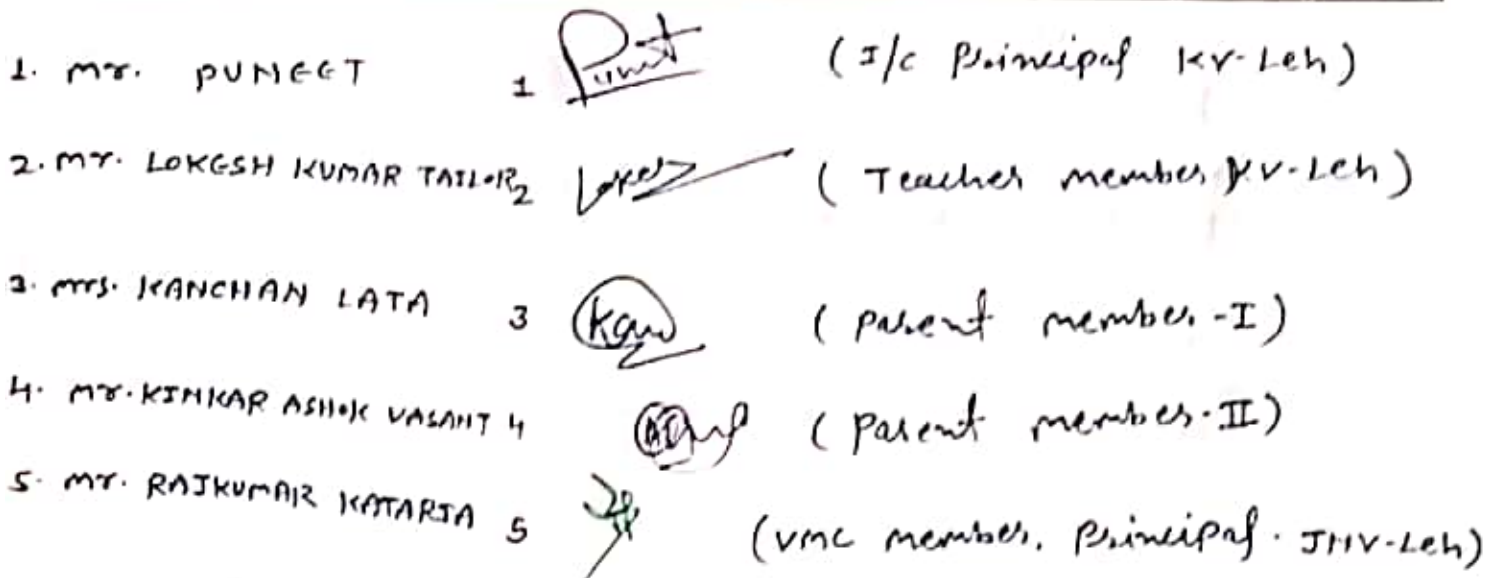 1. Mr. PUNEET 1 Punit (I/c Principal KV-Leh)
2. Mr. LOKESH KUMAR TAILOR 2 (Teacher member KV-Leh)
3. Mrs. KANCHAN LATA 3 Kan (Parent member-I)
4. Mr. KINKAR ASHOK VASANT 4 (Parent member-II)
5. Mr. RAJKUMAR KATARIA 5 (VMC member, Principal. JNV-Leh)